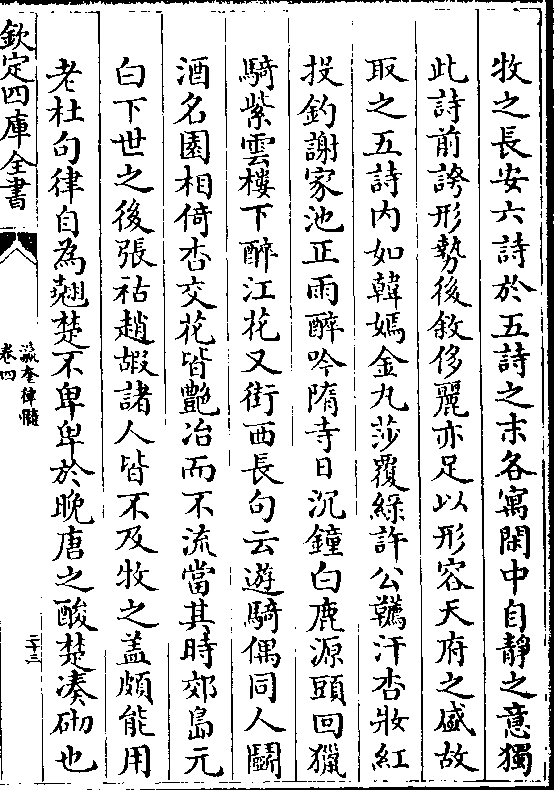 牧之長安六詩於五詩之末各寓閑中自靜之意獨
此詩前誇形勢後敘侈麗亦足以形容天府之盛故
取之五詩内如韓嫣金丸莎覆綠許公韉汗杏妝紅
投釣謝家池正雨醉吟隋寺日沉鐘白鹿源頭回獵
騎紫雲樓下醉江花又街西長句云遊騎偶同人鬭
酒名園相倚杏交花皆艷冶而不流當其時郊島元
白下世之後張祜趙嘏諸人皆不及牧之蓋頗能用
老杜句律自為翹楚不卑卑於晚唐之酸楚湊砌也
欽定四庫全書
瀛奎律髓
卷四
二十三